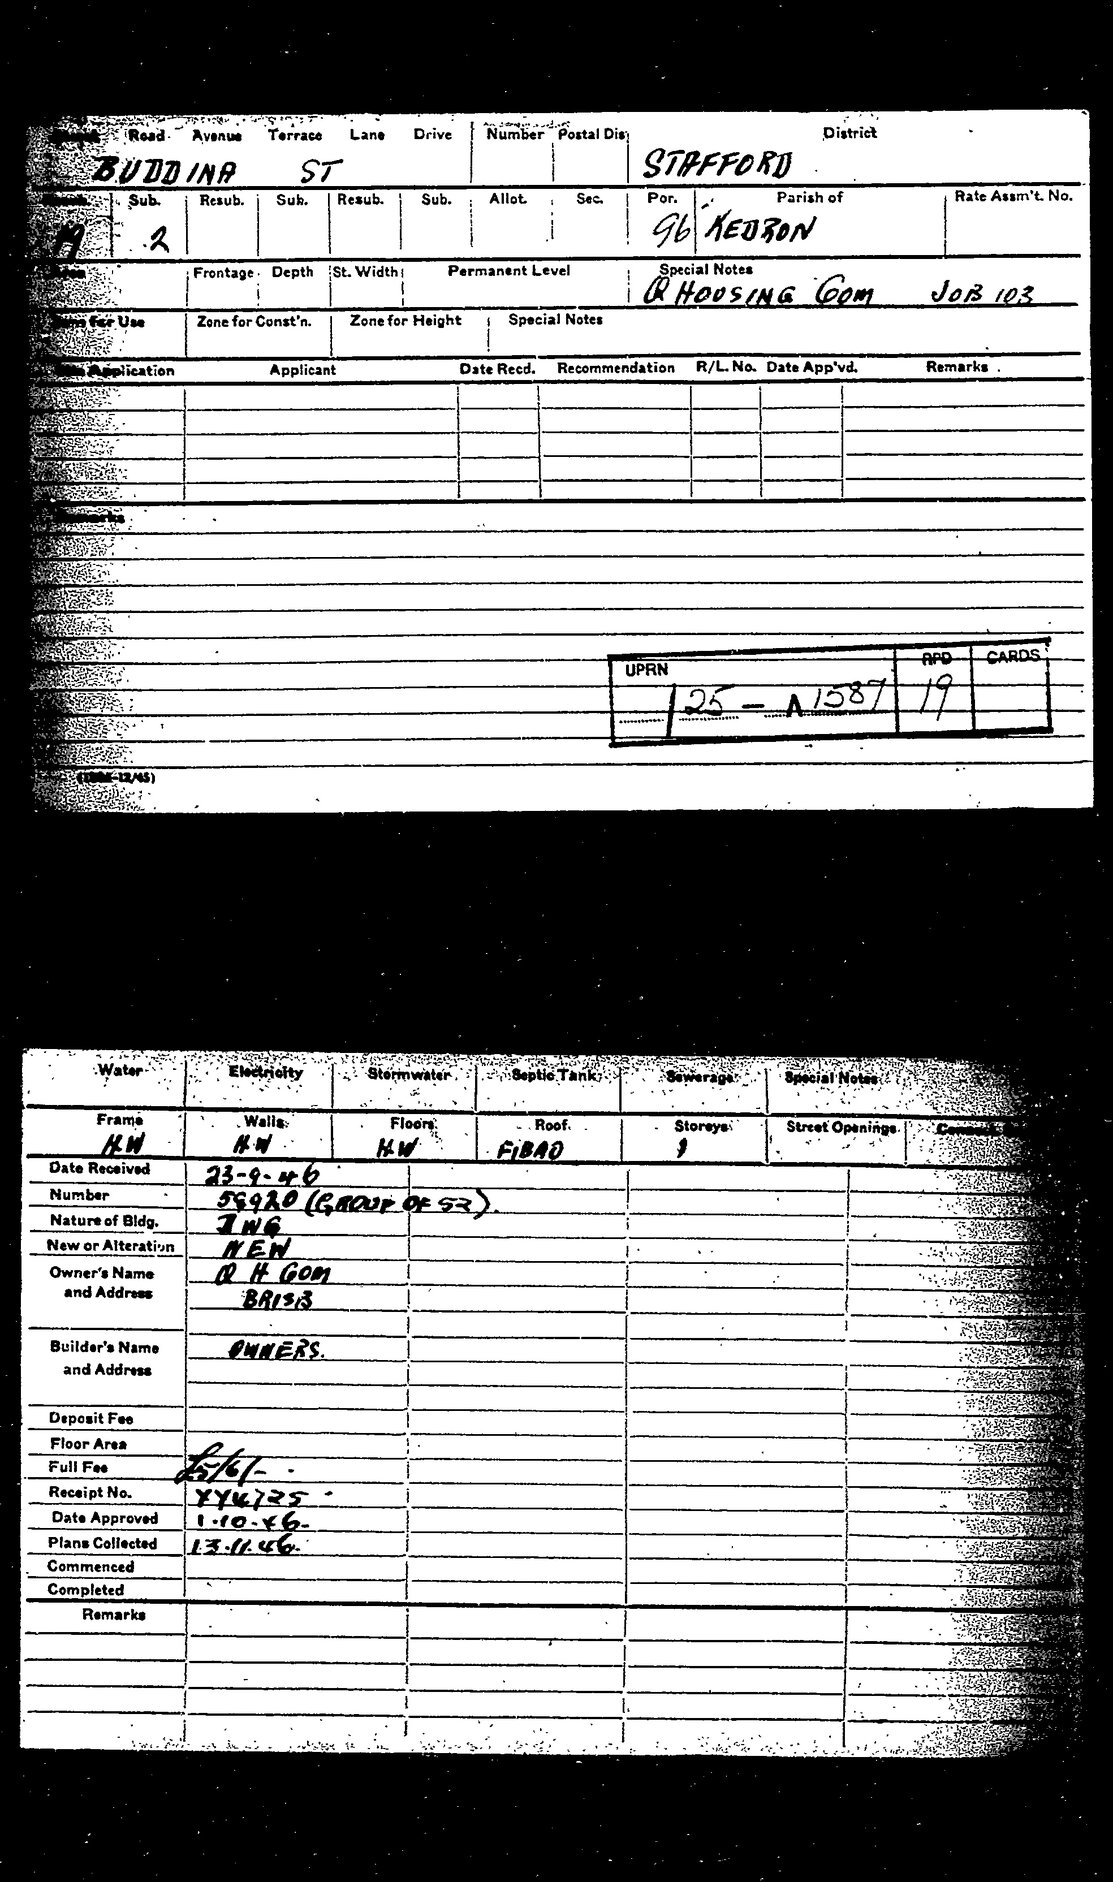 Road Avenue Terrace Lane Drive Number Postal Dis District
BUDDINA ST STAFFORD
Sub. Resub. Sub. Resub. Sub. Allot. Sec. Por. Parish of Rate Assm't. No.
19 2 96 KEDRON
Frontage Depth St. Width Permanent Level Special Notes
Q HOUSING COM JOB 103
for Use Zone for Const'n. Zone for Height Special Notes
Application Applicant Date Recd. Recommendation R/L. No. Date App'vd. Remarks
Remarks
UPRN RPD CARDS
125 - A 1587 19
12/45)
Water Electricity Stormwater Septic Tank Sewerage Special Notes
Frame Walls Floors Roof Storeys Street Openings
H.W H.W H.W FIBRO 1
Date Received 23-9-46
Number 58920 (GROUP OF 52).
Nature of Bldg. DWG
New or Alteration NEW
Owner's Name Q H COM
and Address BRISB
Builder's Name OWNERS.
and Address
Deposit Fee
Floor Area
Full Fee £5/6/-
Receipt No. YY4725
Date Approved 1.10.46.
Plans Collected 13.11.46.
Commenced
Completed
Remarks